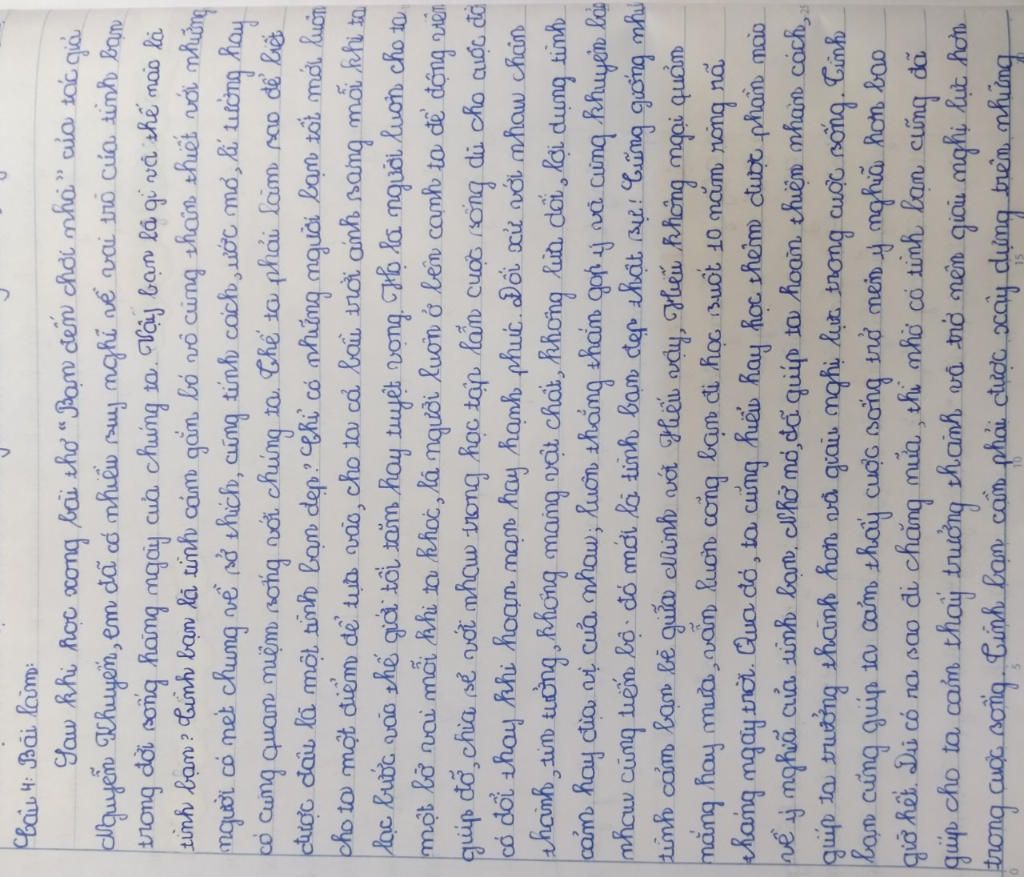 Câu 4: Bài làm:
Sau khi học xong bài thơ "Bạn đến chơi nhà" của tác giả
Nguyễn Khuyến, em đã có nhiều suy nghĩ về vai trò của tình bạn
trong đời sống hàng ngày của chúng ta. Vậy bạn là gì và thế nào là
tình bạn? Tình bạn là tình cảm gắn bó vô cùng thân thiết với những
người có nét chung về sở thích, cùng tính cách, ước mơ, lí tưởng hay
có cùng quan niệm sống với chúng ta. Thế ta phải làm sao để biết
được đâu là một tình bạn đẹp? Chỉ có những người bạn tốt mới luôn
cho ta một điểm để tựa vào, cho ta cả bầu trời ánh sáng mỗi khi ta
lạc bước vào thế giới tối tăm hay tuyệt vọng. Họ là người luôn cho ta
một bờ vai mỗi khi ta khóc, là người luôn ở bên cạnh ta để động viên
giúp đỡ, chia sẻ với nhau trong học tập lẫn cuộc sống dù cho cuộc đời
có đổi thay khi hoạn nạn hay hạnh phúc. Đối xử với nhau chân
thành, tin tưởng, không mang vật chất, không lừa dối, lợi dụng tình
cảm hay địa vị của nhau; luôn thẳng thắn góp ý và cùng khuyên bảo
nhau cùng tiến bộ. đó mới là tình bạn đẹp thật sự! Cũng giống như
tình cảm bạn bè giữa Minh và Hiếu vậy. Hiếu không ngại quản
nắng hay mưa, vẫn luôn cõng bạn đi học suốt 10 năm ròng rã
tháng ngày trời. Qua đó, ta cũng hiểu hay học thêm được phần nào
về ý nghĩa của tình bạn. Nhờ nó, đã giúp ta hoàn thiện nhân cách,
giúp ta trưởng thành hơn và giàu nghị lực trong cuộc sống. Tình
bạn cũng giúp ta cảm thấy cuộc sống trở nên ý nghĩa hơn bao
giờ hết. Dù có ra sao đi chăng nữa, thì nhờ có tình bạn cũng đã
giúp cho ta cảm thấy trưởng thành và trở nên giàu nghị lực hơn
trong cuộc sống. Tình bạn cần phải được xây dựng trên những